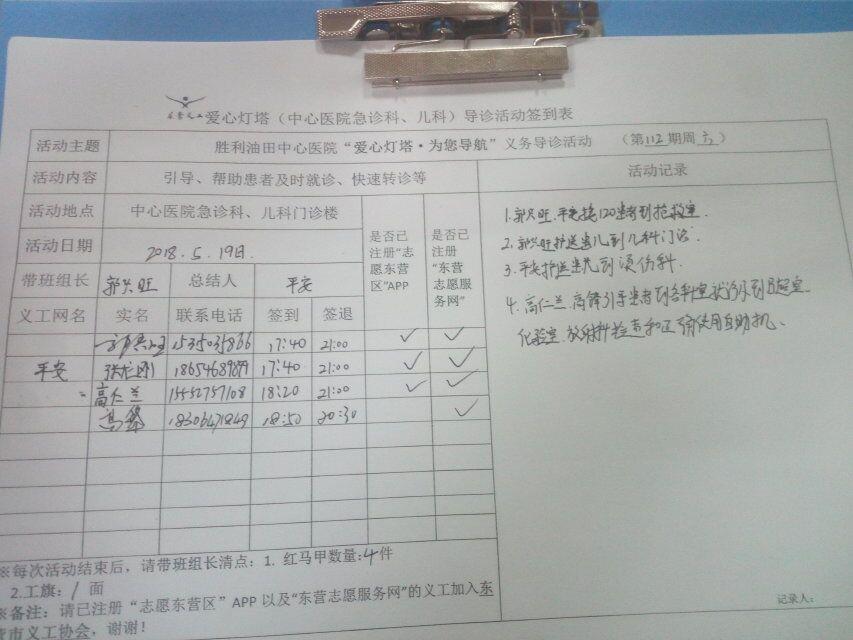 东营义工 爱心灯塔（中心医院急诊科、儿科）导诊活动签到表
活动主题 胜利油田中心医院“爱心灯塔·为您导航”义务导诊活动 （第112期周六）
活动内容 引导、帮助患者及时就诊、快速转诊等 活动记录
活动地点 中心医院急诊科、儿科门诊楼 是否已注册“志愿东营区”APP 是否已注册“东营志愿服务网”
活动日期 2018.5.19日.
带班组长 郭兴旺 总结人 平安
义工网名 实名 联系电话 签到 签退
郭兴旺 17:40 21:00 ✓ ✓
平安 17:40 21:00 ✓ ✓
高仁兰 15552757108 18:20 21:00 ✓ ✓
高锋 18306471849 18:50 20:30 ✓
1.郭兴旺.平安接120患者到抢救室.
2.郭兴旺护送患儿到儿科门诊.
3.平安护送患儿到烫伤科.
4.高仁兰.高锋引导患者到各科室就诊.
化验室.放射科检查和正确使用自助机、
※每次活动结束后，请带班组长清点：1. 红马甲数量:4件
2.工旗：/ 面
※备注：请已注册“志愿东营区”APP以及“东营志愿服务网”的义工加入东
营市义工协会，谢谢！
记录人：